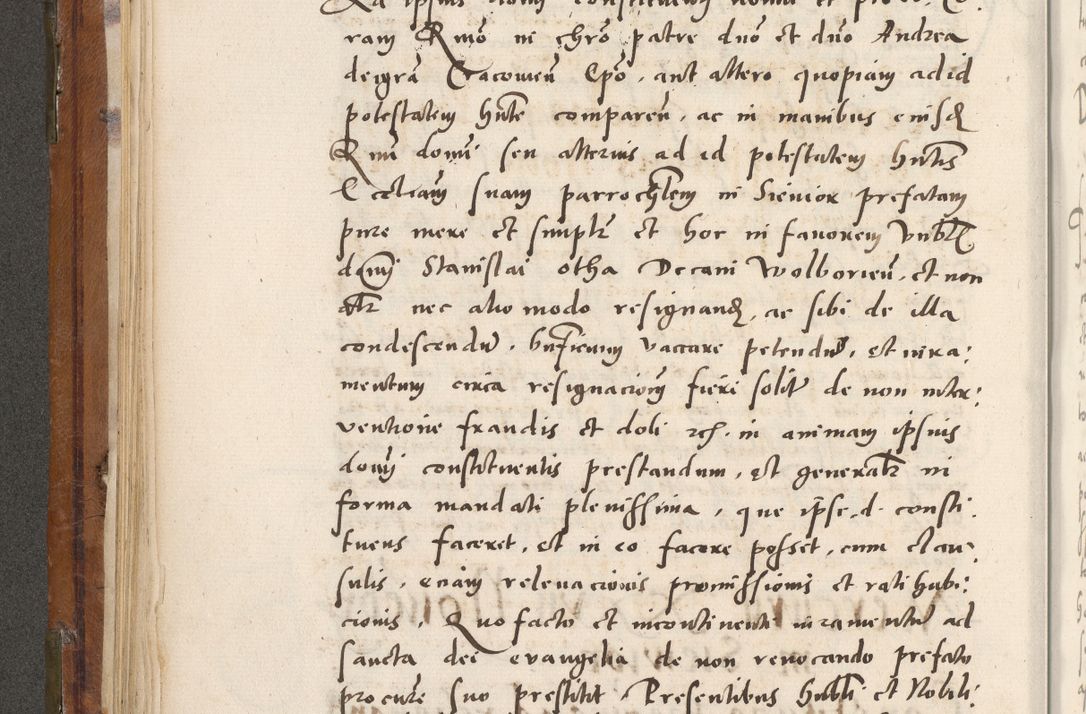 ram R̃mo in chro patre dno et dno Andrea
deigrã Cracovien Epo, aut altero quopiam ad id
potestatem hñte comparen, ac in manibus eiusd
Rmi domi seu alterius ad id potestatem hñtis
Eccliam suam parrochlem in Sieniov prefatam
pure mere et simplr et hoc in favorem Vnblis
domi Stanislai otha Decani Wolborien, et non
alr nec alio modo resignand, ac sibi de illa
condescendu, bnficium vaccare petendu, Et iura:
mentum circa resignaciom fieri solitu de non inter:
ventione fraudis et doli etc. in animam ipsius
domi constituentis prestandum, Et generalr in
forma mandati plenissima, que ipse d. consti
tuens faceret, Et in eo facere posset, cum clau
sulis, eciam relevacionis promissionis et ratihabi:
cionis, Quo facto et incontinenti iuramentu ad
sancta dei evangelia de non revocando prefato
procure suo prestitit, Presentibus hnbli et Nobili: